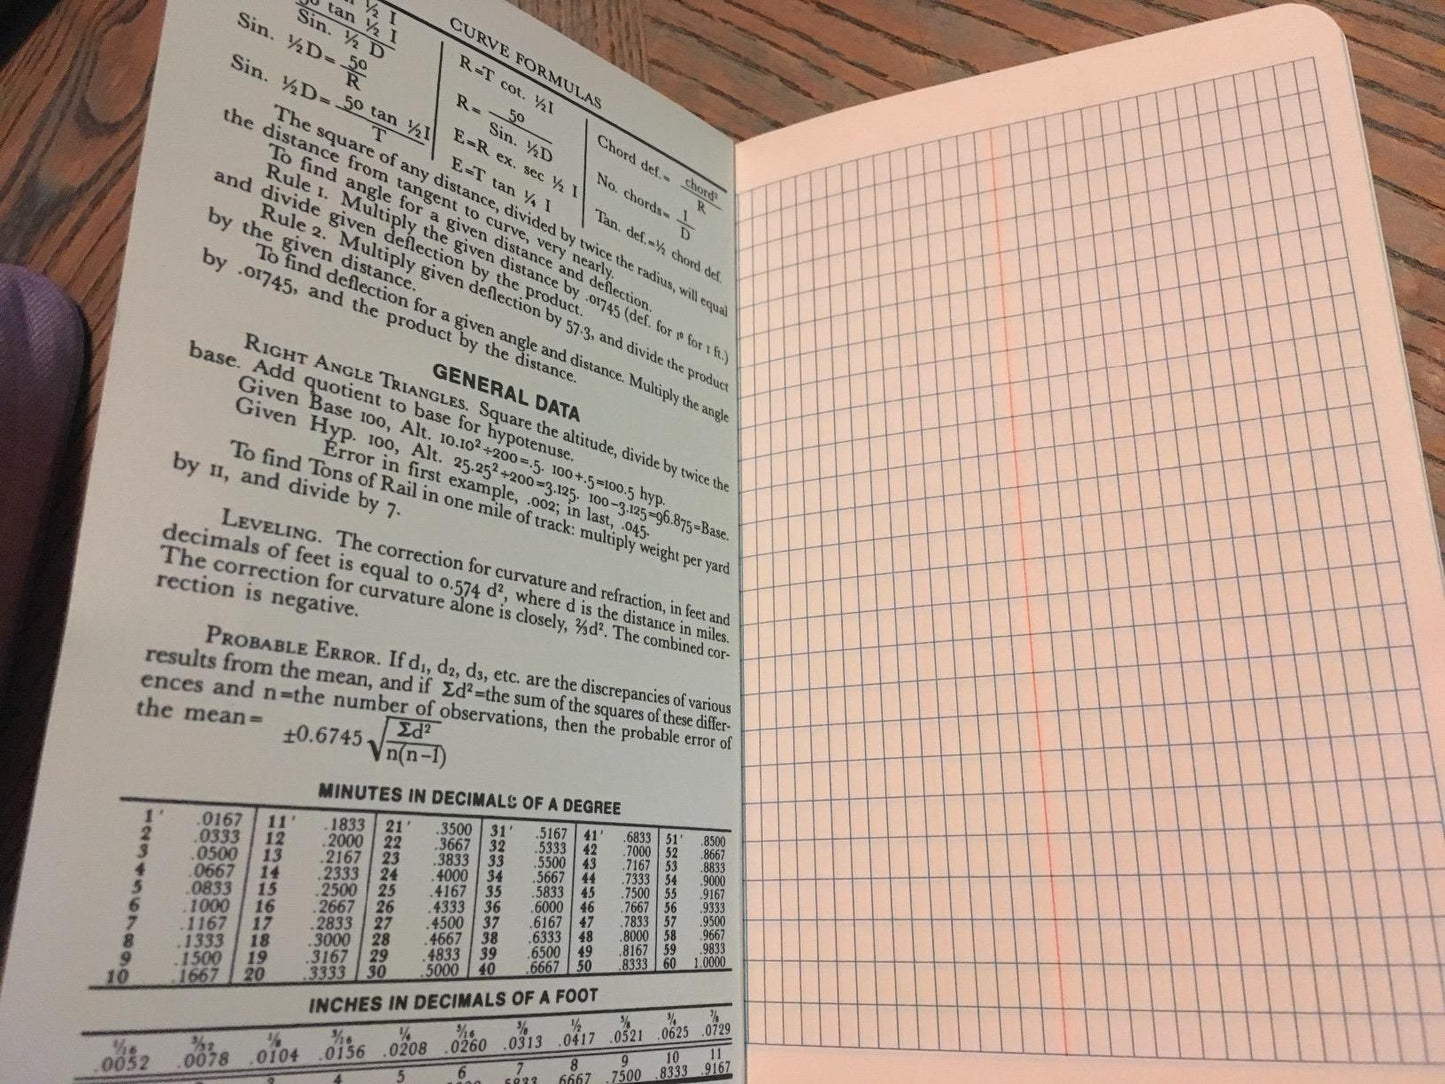 CURVE FORMULAS
½ I
50 tan ½ I
Sin. ½ D
Sin. ½D= 50
R
Sin. ½D= 50 tan ½I
T
R=T cot. ½I
R= 50
Sin. ½D
E=R ex. sec ½ I
E=T tan ¼ I
Chord def.= chord²
R
No. chords= I
D
Tan. def.=½ chord def.
The square of any distance, divided by twice the radius, will equal
the distance from tangent to curve, very nearly.
To find angle for a given distance and deflection.
Rule 1. Multiply the given distance by .01745 (def. for 1° for 1 ft.)
and divide given deflection by the product.
Rule 2. Multiply given deflection by 57.3, and divide the product
by the given distance.
To find deflection for a given angle and distance. Multiply the angle
by .01745, and the product by the distance.
GENERAL DATA
RIGHT ANGLE TRIANGLES. Square the altitude, divide by twice the
base. Add quotient to base for hypotenuse.
Given Base 100, Alt. 10.10²÷200=.5. 100+.5=100.5 hyp.
Given Hyp. 100, Alt. 25.25²÷200=3.125. 100-3.125=96.875=Base.
Error in first example, .002; in last, .045.
To find Tons of Rail in one mile of track: multiply weight per yard
by 11, and divide by 7.
LEVELING. The correction for curvature and refraction, in feet and
decimals of feet is equal to 0.574 d², where d is the distance in miles.
The correction for curvature alone is closely, ⅔d². The combined cor-
rection is negative.
PROBABLE ERROR. If d₁, d₂, d₃, etc. are the discrepancies of various
results from the mean, and if Σd²=the sum of the squares of these differ-
ences and n=the number of observations, then the probable error of
the mean= ±0.6745 √ Σd²
n(n-1)
MINUTES IN DECIMALS OF A DEGREE
1' .0167 11' .1833 21' .3500 31' .5167 41' .6833 51' .8500
2 .0333 12 .2000 22 .3667 32 .5333 42 .7000 52 .8667
3 .0500 13 .2167 23 .3833 33 .5500 43 .7167 53 .8833
4 .0667 14 .2333 24 .4000 34 .5667 44 .7333 54 .9000
5 .0833 15 .2500 25 .4167 35 .5833 45 .7500 55 .9167
6 .1000 16 .2667 26 .4333 36 .6000 46 .7667 56 .9333
7 .1167 17 .2833 27 .4500 37 .6167 47 .7833 57 .9500
8 .1333 18 .3000 28 .4667 38 .6333 48 .8000 58 .9667
9 .1500 19 .3167 29 .4833 39 .6500 49 .8167 59 .9833
10 .1667 20 .3333 30 .5000 40 .6667 50 .8333 60 1.0000
INCHES IN DECIMALS OF A FOOT
1/16 3/32 ⅛ 3/16 ¼ 5/16 ⅜ ½ ⅝ ¾ ⅞
.0052 .0078 .0104 .0156 .0208 .0260 .0313 .0417 .0521 .0625 .0729
3 4 5 6 7 8 9 10 11
.6667 .7500 .8333 .9167